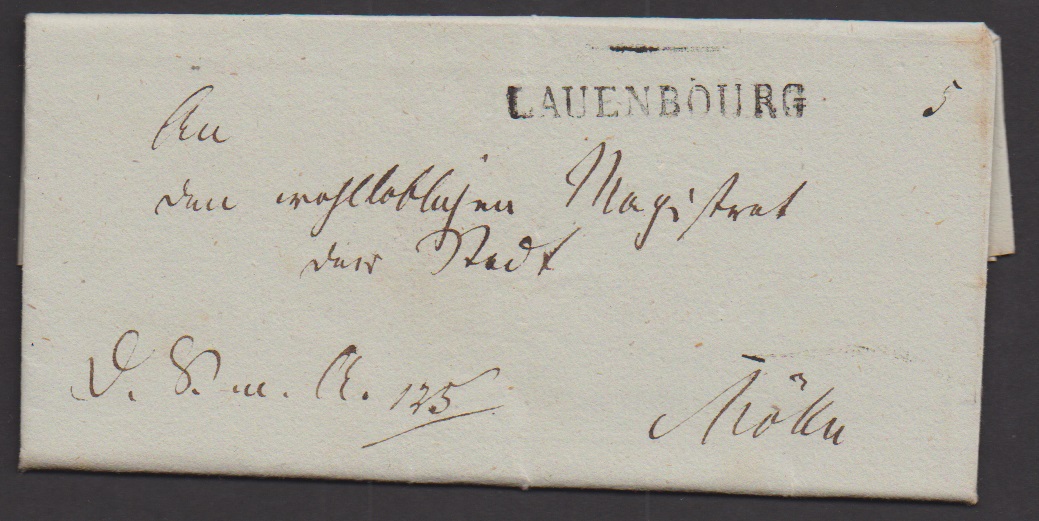 LAUENBOURG
5
An
den wohllöblichen Magistrat
der Stadt
D. S. m. A. 125
Mölln